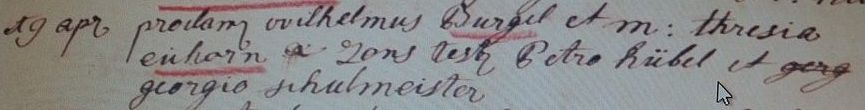 29 apr proclam wilhelmus Burgel et m: thresia
einhorn x Zons test Petro hübel et
georgio schulmeister